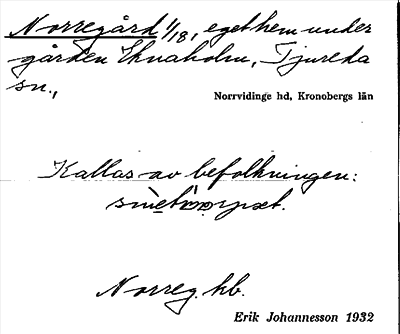 Norregård 1/18, eget hem under
gården Eknaholm, Tjureda
sn.,
Norrvidinge hd, Kronobergs län
Kallas av befolkningen:
Norreg. hb.
Erik Johannesson 1932